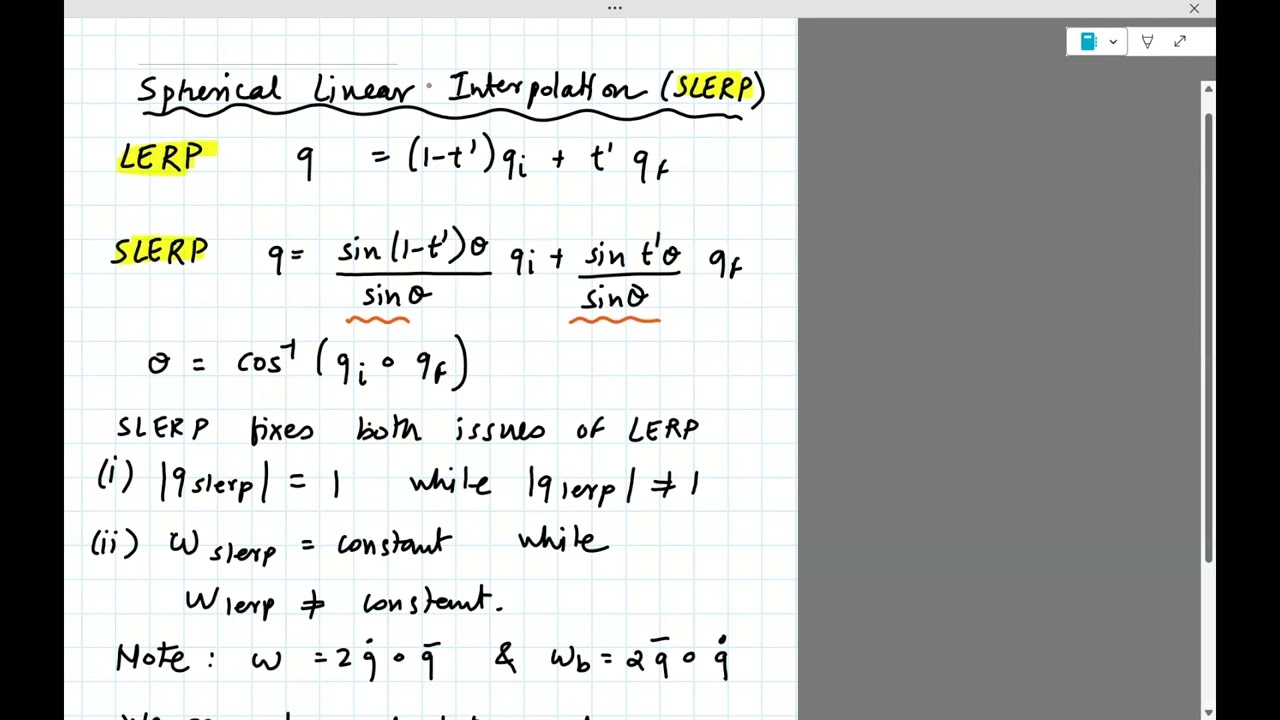 Spherical Linear Interpolation (SLERP)
LERP q = (1-t')qi + t' qf
SLERP q = sin(1-t')θ / sinθ qi + sin t'θ / sinθ qf
θ = cos⁻¹ (qi ∘ qf)
SLERP fixes both issues of LERP
(i) |qslerp| = 1 while |qlerp| ≠ 1
(ii) ω slerp = constant while
ωlerp ≠ constant.
Note: ω = 2 q̇ ∘ q̄ & ωb = 2 q̄ ∘ q̇